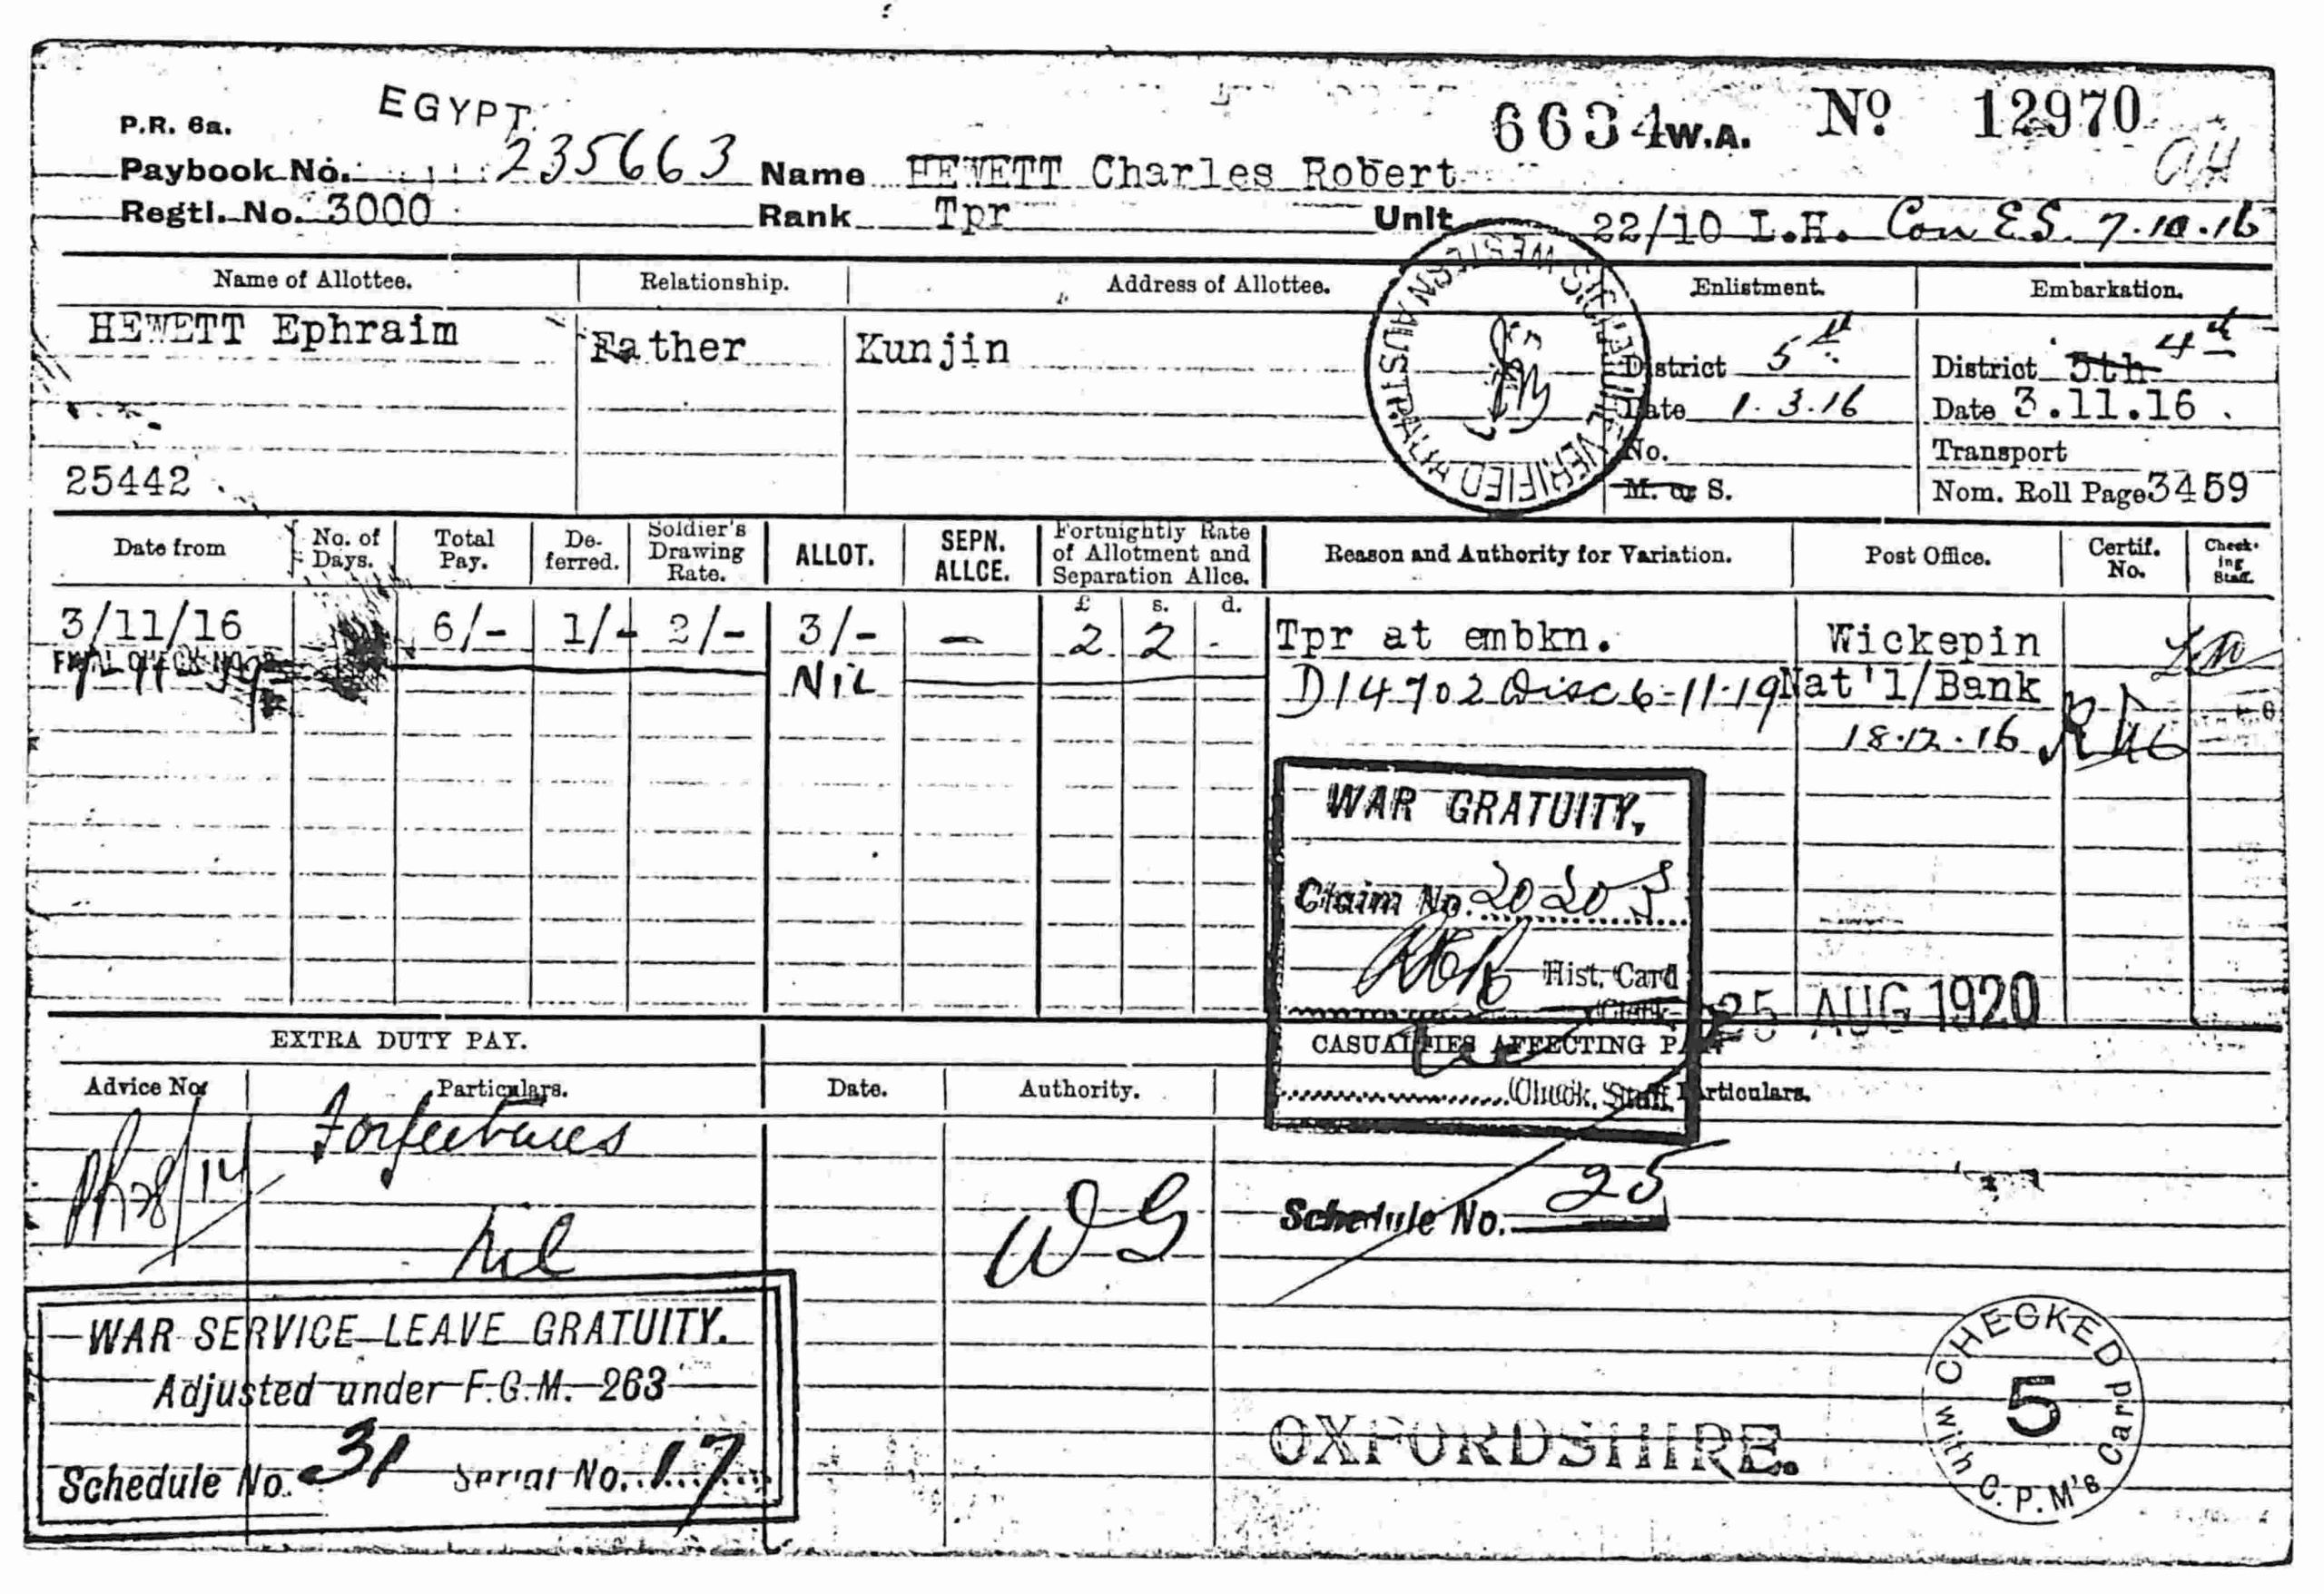 EGYPT.
6634 W.A. No 12970
P.R. 6a.
Paybook No. 235663 Name HEWETT Charles Robert
Regtl. No. 3000 Rank Tpr Unit 22/10 L.H. Con E.S. 7.10.16
Name of Allottee. Relationship. Address of Allottee. Enlistment. Embarkation.
HEWETT Ephraim Father Kunjin
District 5th District 5th 4th
Date 1.3.16 Date 3.11.16.
No. Transport
25442 M. or S. Nom. Roll Page 3459
SIG. VERIFIED WESTERN AUSTRALIA
Date from No. of Days. Total Pay. De-ferred. Soldier's Drawing Rate. ALLOT. SEPN. ALLCE. Fortnightly Rate of Allotment and Separation Allce. Reason and Authority for Variation. Post Office. Certif. No. Check-ing Staff.
£ s. d.
3/11/16 6/- 1/- 2/- 3/- — 2 2 - Tpr at embkn. Wickepin
Nil D14702 Disc 6-11-19 Nat'l/Bank
18.12.16
WAR GRATUITY,
Claim No. 20205
Hist. Card
25 AUG 1920
EXTRA DUTY PAY. CASUALTIES AFFECTING PAY.
Check. Staff.
Advice No. Particulars. Date. Authority. Particulars.
Forfeitures
Nil
WG
Schedule No. 25
WAR SERVICE LEAVE GRATUITY.
Adjusted under F.G.M. 263
Schedule No. 31 Serial No. 17
OXFORDSHIRE.
CHECKED
5
With C.P.M's Card